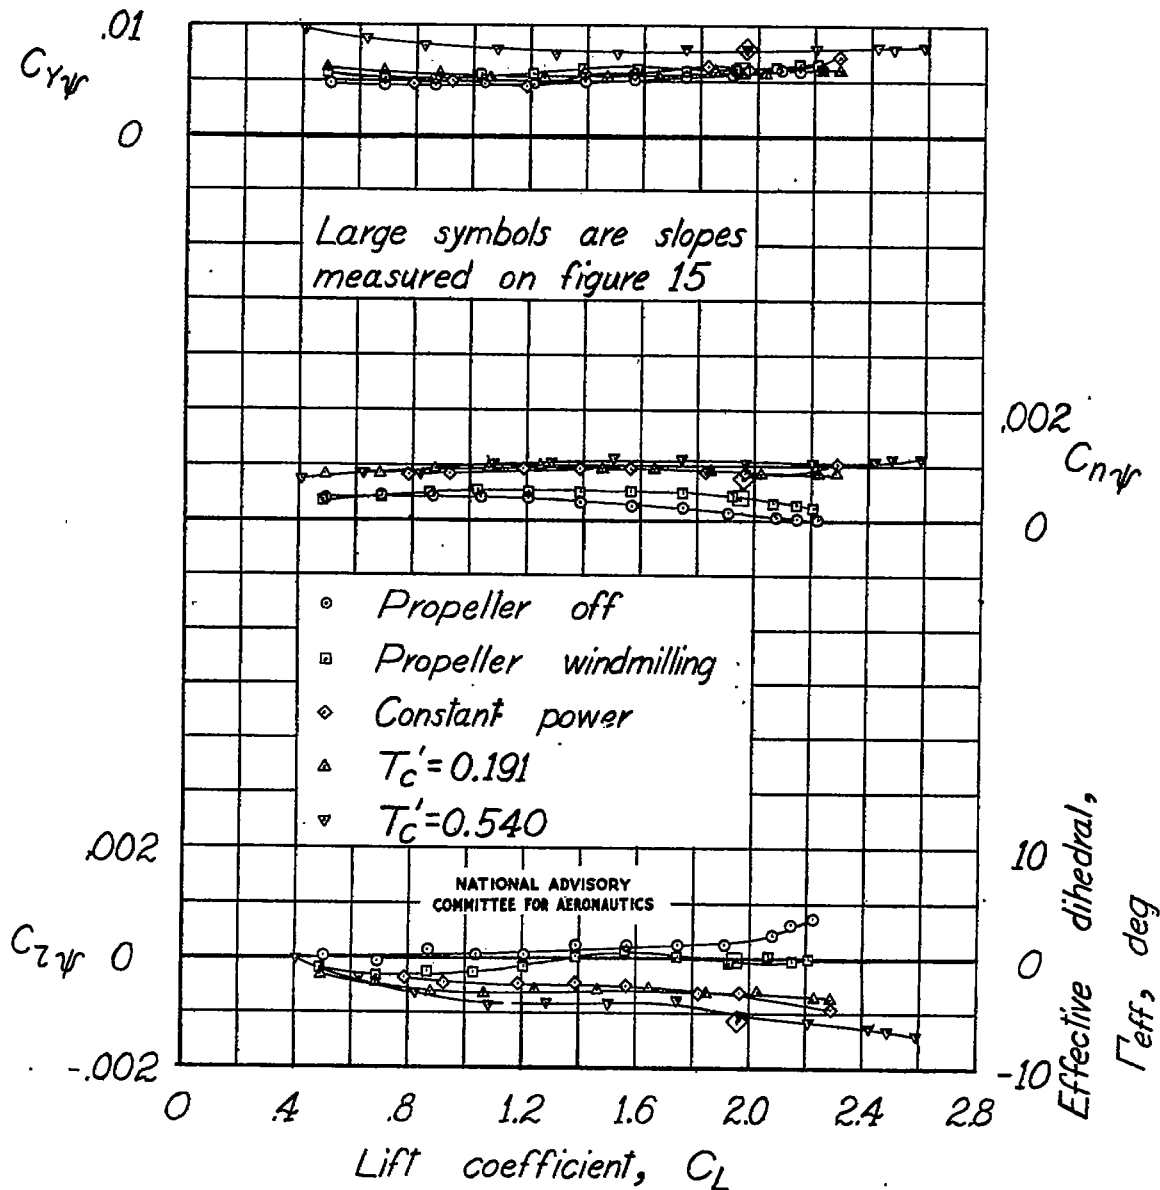 .01
C_Yψ
0
Large symbols are slopes
measured on figure 15
.002
C_nψ
0
Propeller off
Propeller windmilling
Constant power
T_c'=0.191
T_c'=0.540
.002
10
NATIONAL ADVISORY
COMMITTEE FOR AERONAUTICS
C_lψ
0
0
-.002
-10
Effective dihedral,
Γeff, deg
0 .4 .8 1.2 1.6 2.0 2.4 2.8
Lift coefficient, C_L